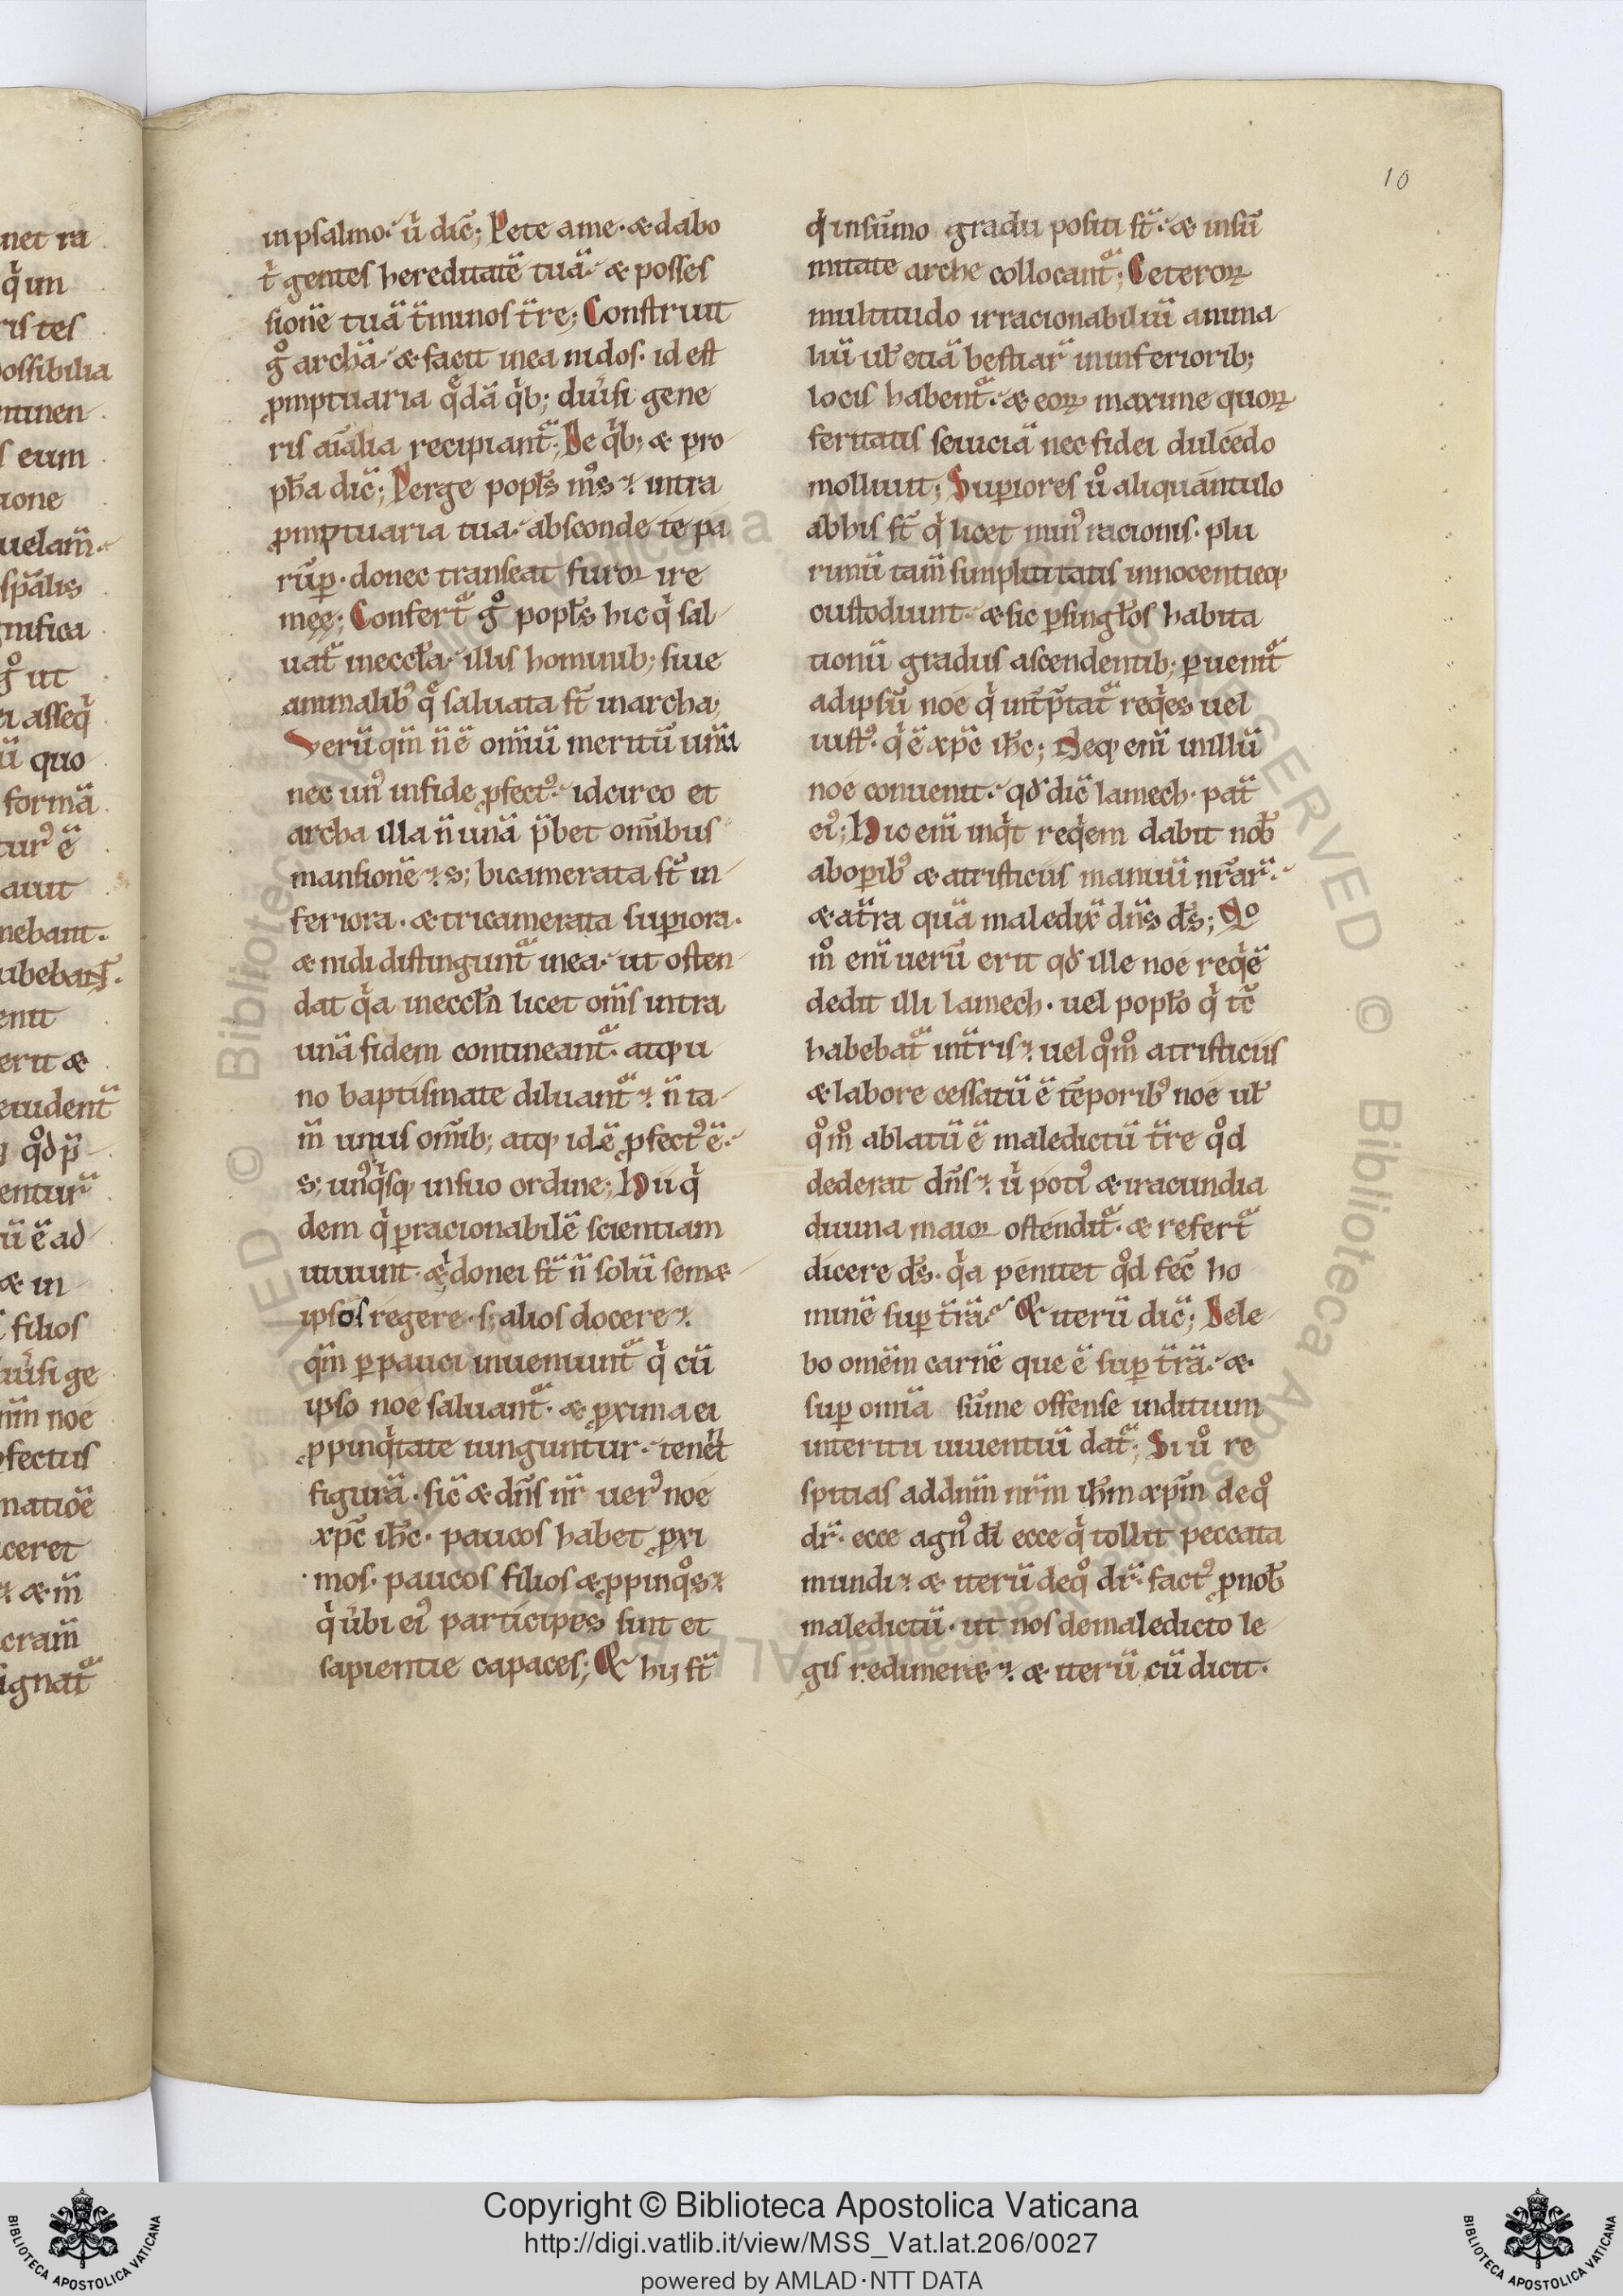 10
in psalmo. u̍ dic̄; Pete a me. & dabo
t̍ gentes hereditatē tuā. & posses
sionē tuā t̄minos t̄re; Construit
g̊ archā. & facit in ea nidos. id est
ꝓmptuaria q̄dā q̍b; diu̍si gene
ris aīalia recipiant᷑. De q̍b; & pro
ph̄a dic̄; Perge popl̄s m̊s. intra
ꝓmptuaria tua. absconde te pa
rūꝑ. donec transeat furor ire
mee; Confert᷑ g̊ popl̄s hic q̍ sal
uat᷑ in eccl̄a. illis hominib; siue
animalib᷒ q̄ saluata st̄ in archa;
Verū qm̄ n̄ ē omīū meritū unū
nec un᷒ in fide ꝓfect᷒. idcirco et
archa illa n̄ unā p̄bet omībus
mansionē. s; bicamerata st̄ in
feriora. & tricamerata suꝑiora.
& nidi distingunt᷑ in ea. ut osten
dat q̍a in eccl̄a licet om̄s intra
unā fidem contineant᷑. atq; u
no baptismate diluant᷑. n̄ ta
m̄ unus omīb; atq; idē ꝓfect᷒ ē.
s; un᷒q̍sq; in suo ordine; Hii q̍
dem q̍ ꝑ racionabilē scientiam
uiuunt. & idonei st̄ n̄ solū sem&
ipsos regere. s; alios docere.
qm̄ ꝑpauci inueniunt᷑ q̍ cū
ipso noe saluant᷑. & ꝓxima ei
ꝓpinq̍tate iunguntur. tenent
figurā. sic̄ & dn̄s nr̄ uer᷒ noe
xp̄c ih̄c. paucos habet ꝓxi
mos. paucos filios & ꝓpinq̊s.
q̍ u̍bi ei᷒ participes sint et
sapientie capaces; & hii st̄
q̍ in sūmo gradu positi st̄. & in sū
mitate arche collocant᷑; Ceteroꝝ
multitudo irracionabiliū anima
liū ul̄ etiā bestiar̄ in inferiorib;
locis habent᷑. & eoꝝ maxime quoꝝ
feritatis seuiciā nec fidei dulcedo
molliuit; Suꝑiores ů aliquantulo
ab his st̄ q̍ licet min᷒ racionis. plu
rimū tam̄ simplicitatis innocentieq;
custodiunt. & sic ꝑ singl̄os habita
tionū gradus ascendentib; ꝑuenit᷑
ad ipsū noe q̍ int̄p̄tat᷑ req̍es uel
iust᷒. q̍ ē xp̄c ih̄c; Neq; enī in illū
noe conuenit. qđ dic̄ lamech. pat̄
ei᷒; Hic enī inq̍t req̍em dabit nob̄
ab oꝑib᷒ & a tristiciis manuū nr̄ar̄.
& a t̄ra quā maledix̄ dn̄s d̄s; Qo
m̊ enī uerū erit qđ ille noe req̍ē
dedit illi lamech. uel popl̄o q̍ tc̄
habebat᷑ in t̄ris. uel q̊m̊ a tristiciis
& labore cessatū ē tēporib᷒ noe ul̄
q̊m̊ ablatū ē maledictū t̄re q̊d
dederat dn̄s. u̍ poti᷒ & iracundia
diuina maior ostendit᷑. & refert᷑
dicere d̄s. q̍a penitet q̊d fec̄ ho
minē suꝑ t̄rā. & iterū dic̄; Dele
bo omēm carnē que ē suꝑ t̄rā. &
suꝑ omīa sūme offense inditium
interitu uiuentiū dat᷑; Si ů re
spitias ad dn̄m nr̄m ih̄m xp̄m de q̊
dr̄. ecce agn᷒ di̍ ecce q̍ tollit peccata
mundi. & iterū de q̊ dr̄. fact᷒ ꝓ nob̄
maledictū. ut nos de maledicto le
gis redimer&. & iterū cū dicit.
Copyright © Biblioteca Apostolica Vaticana
http://digi.vatlib.it/view/MSS_Vat.lat.206/0027
powered by AMLAD·NTT DATA
BIBLIOTECA APOSTOLICA VATICANA
BIBLIOTECA APOSTOLICA VATICANA